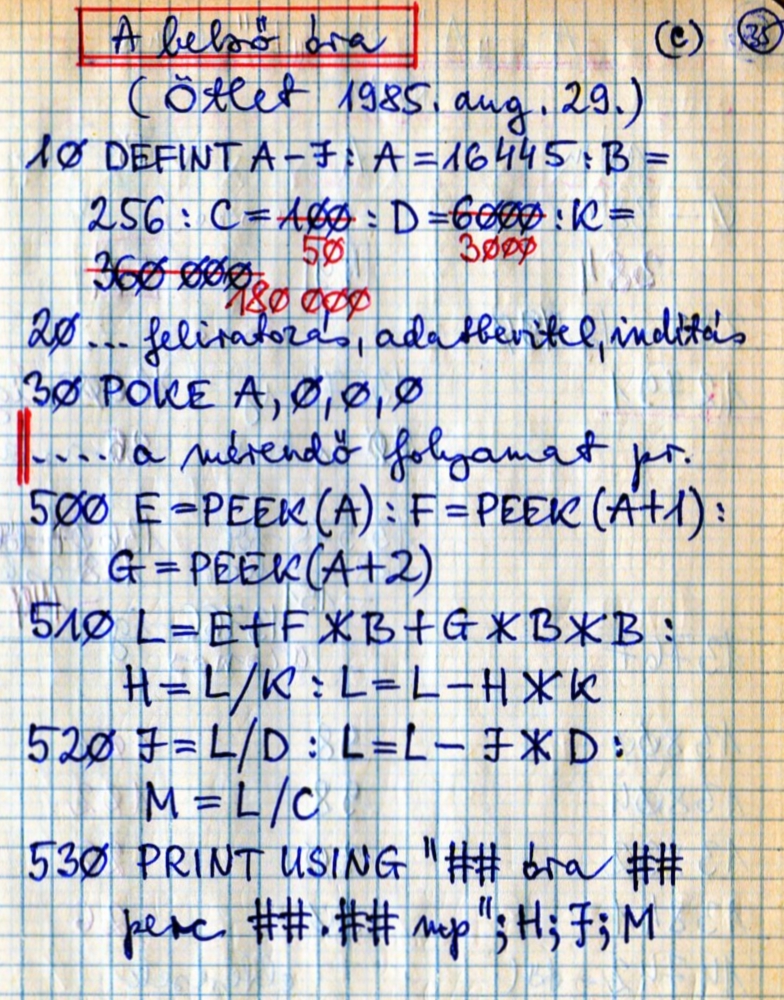 A belső óra (c) 35
(Ötlet 1985. aug. 29.)
10 DEFINT A-J: A=16445:B=
256 : C=100 : D=6000 :K=
50 3000
360 000
180 000
20... feliratozás, adatbevitel, indítás
30 POKE A,0,0,0
.... a mérendő folyamat pr.
500 E=PEEK(A): F=PEEK(A+1):
G=PEEK(A+2)
510 L=E+F*B+G*B*B :
H=L/K : L=L-H*K
520 J=L/D : L=L-J*D :
M=L/C
530 PRINT USING "## óra ##
perc ##.## mp"; H; J; M